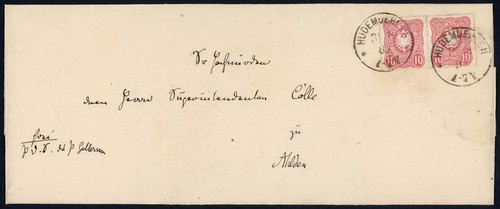 HUDEMUEHLEN
HUDEMUEHLEN
1-7N
10 10
Sr Hochwürden
dem Herrn Superintendenten Cölle
zu
Ahlden
frei